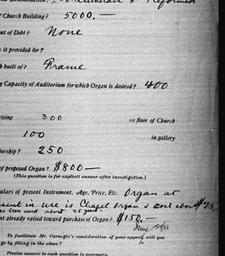 Lutheran & Reformed
of Church Building? 5000.—
nt of Debt? None
is it provided for?
h built of? Frame
g Capacity of Auditorium for which Organ is desired? 400
ising 300 on floor of Church
100 in gallery
bership? 250
of proposed Organ? $800—
(This question is for explicit answer after investigation.)
ulars of present Instrument. Age, Price, Etc. Organ at
sent in use is Chapel Organ & cost about $75.—
been used about 25 years.
nt already raised toward purchase of Organ? $150.—
To facilitate Mr. Carnegie's consideration of your appeal will you
ge by filling in the above?
Precise answer to each question is necessary.